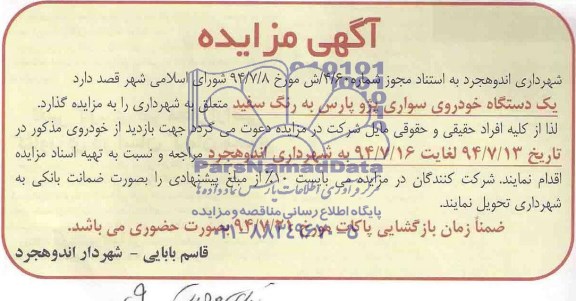 آگهی مزایده
شهرداری اندوهجرد به استناد مجوز شماره ۴/۶۰/ش مورخ ۹۴/۷/۸ شورای اسلامی شهر قصد دارد
یک دستگاه خودروی سواری پژو پارس به رنگ سفید متعلق به شهرداری را به مزایده گذارد.
لذا از کلیه افراد حقیقی و حقوقی مایل شرکت در مزایده دعوت می گردد جهت بازدید از خودروی مذکور در
تاریخ ۹۴/۷/۱۳ لغایت ۹۴/۷/۱۶ به شهرداری اندوهجرد مراجعه و نسبت به تهیه اسناد مزایده
اقدام نمایند. شرکت کنندگان در مزایده می بایست ۱۰٪ از مبلغ پیشنهادی را بصورت ضمانت بانکی به
شهرداری تحویل نمایند.
ضمناً زمان بازگشایی پاکات مورخ بصورت حضوری می باشد.
قاسم بابایی - شهردار اندوهجرد
ParsNamadData
پایگاه اطلاع رسانی مناقصه و مزایده